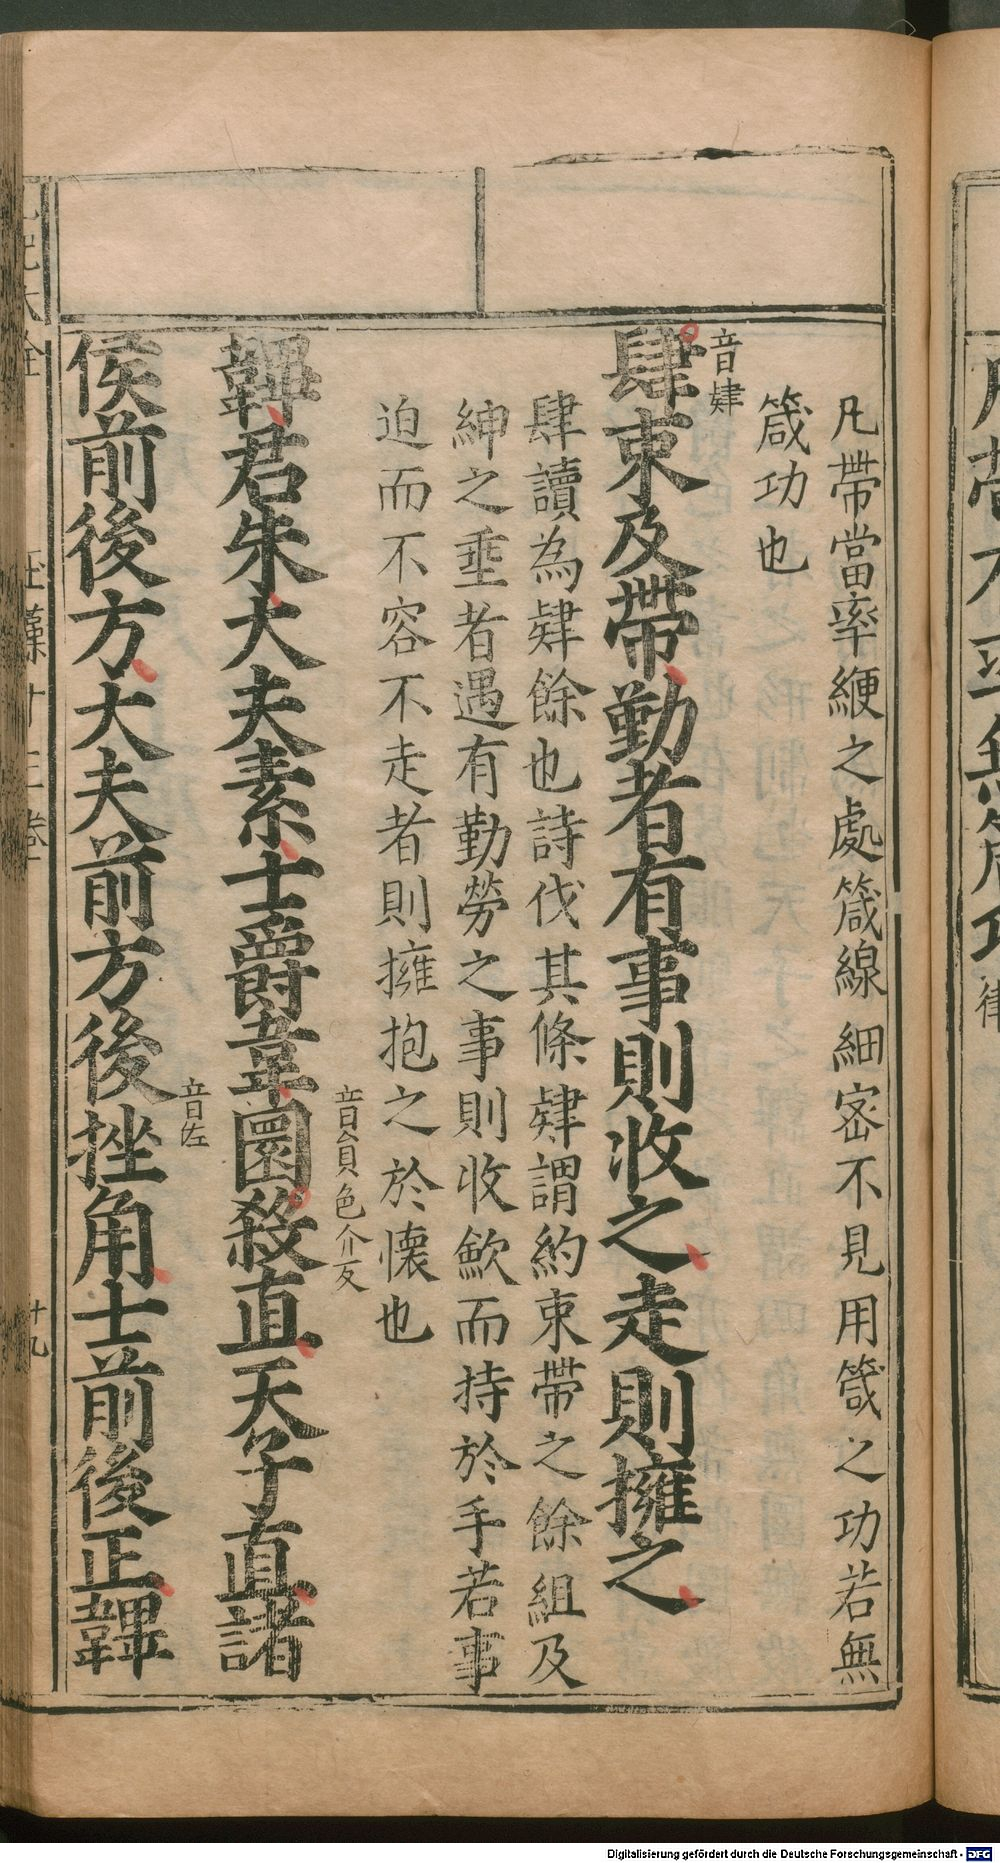 凡帶當率緶之處箴線細密不見用箴之功若無
箴功也
音肄
肆束及帶勤者有事則收之走則擁之
肆讀為肄餘也詩伐其條肄謂約束帶之餘組及
紳之垂者遇有勤勞之事則收斂而持於手若事
迫而不容不走者則擁抱之於懷也
音員色介反
韠君朱大夫素士爵韋圜殺直天子直諸
音佐
侯前後方大夫前方後挫角士前後正韠
玉藻十三卷
十九
Digitalisierung gefördert durch die Deutsche Forschungsgemeinschaft - DFG